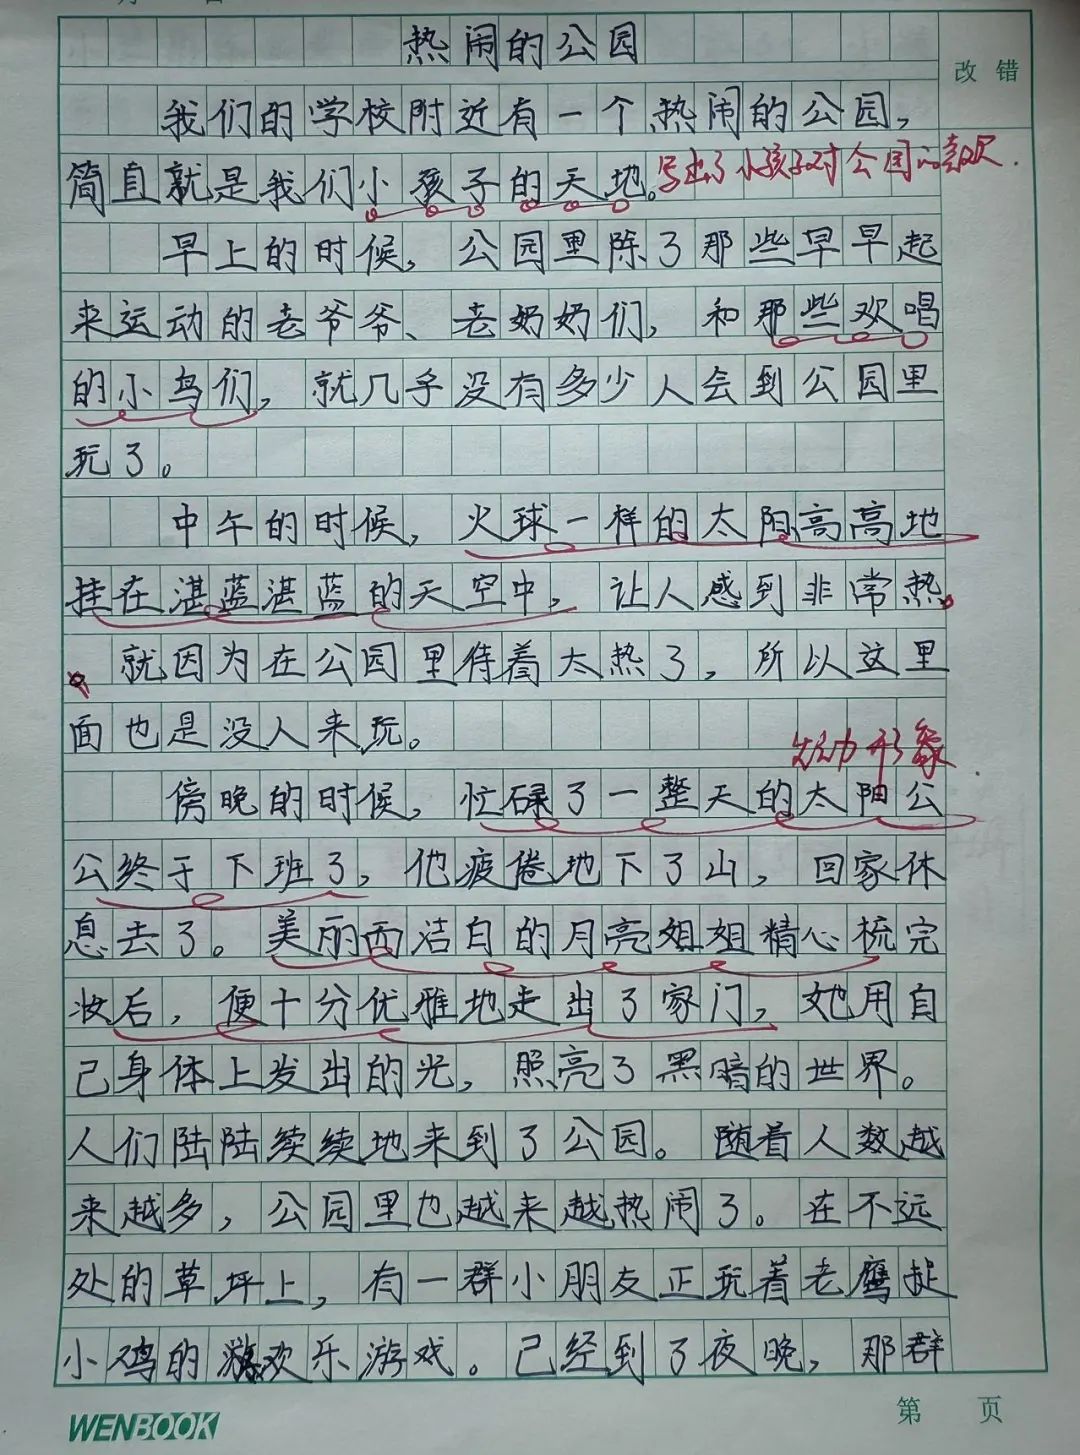 热闹的公园
改错
我们的学校附近有一个热闹的公园，
简直就是我们小孩子的天地。
写出了小孩子对公园的喜欢.
早上的时候，公园里除了那些早早起
来运动的老爷爷、老奶奶们，和那些欢唱
的小鸟们，就几乎没有多少人会到公园里
玩了。
中午的时候，火球一样的太阳高高地
挂在湛蓝湛蓝的天空中，让人感到非常热。
就因为在公园里待着太热了，所以这里
面也是没人来玩。
生动形象
傍晚的时候，忙碌了一整天的太阳公
公终于下班了，他疲倦地下了山，回家休
息去了。美丽而洁白的月亮姐姐精心梳完
妆后，便十分优雅地走出了家门，她用自
己身体上发出的光，照亮了黑暗的世界。
人们陆陆续续地来到了公园。随着人数越
来越多，公园里也越来越热闹了。在不远
处的草坪上，有一群小朋友正玩着老鹰捉
小鸡的欢乐游戏。已经到了夜晚，那群
WENBOOK
第 页